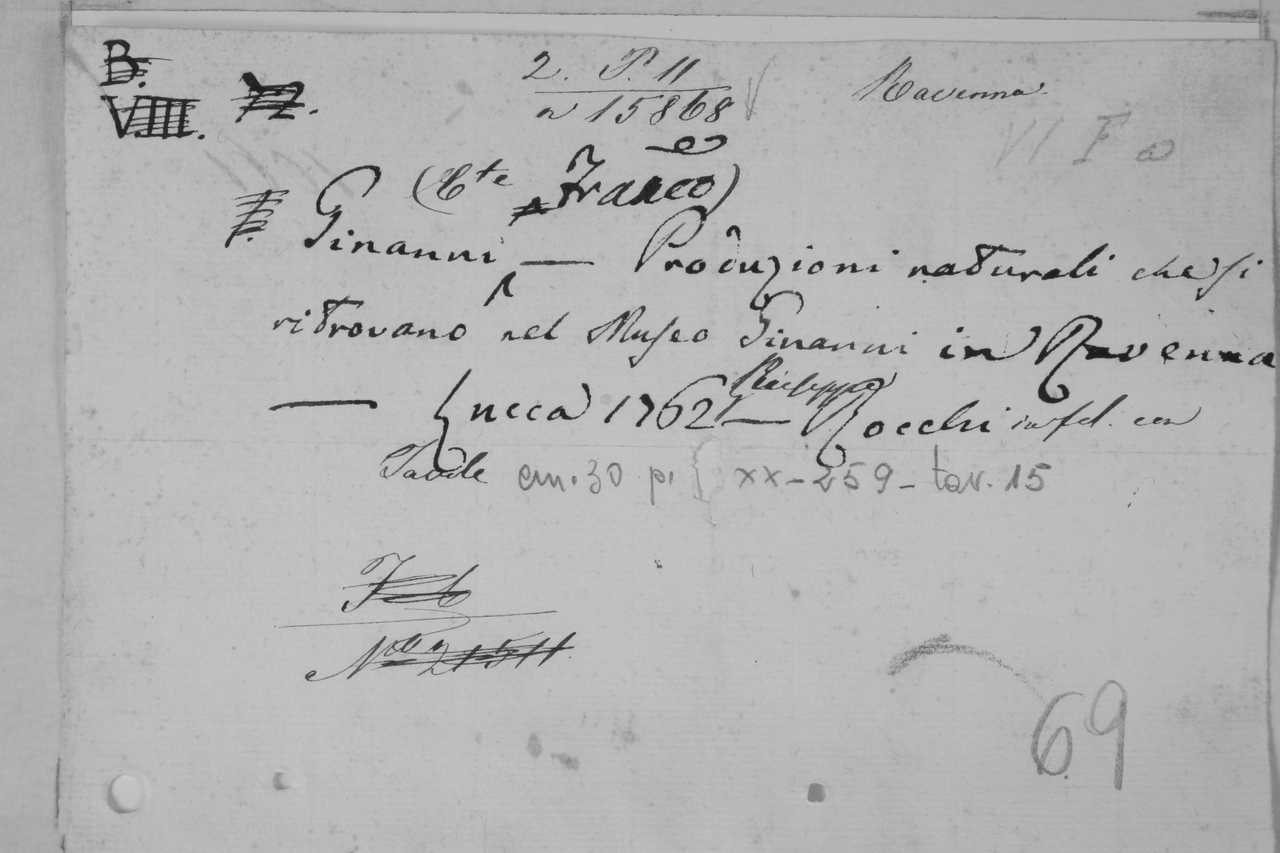 B.
VIII. 72.
2. P. 11
n 15868
Ravenna
VI F a
(Cte Franco)
Ginanni — Produzioni naturali che si
ritrovano nel Museo Ginanni in Ravenna
— Lucca 1762 — Rocchi in fol. con
Tavole cm. 30 p. { xx-259- tav. 15
No 21511
69